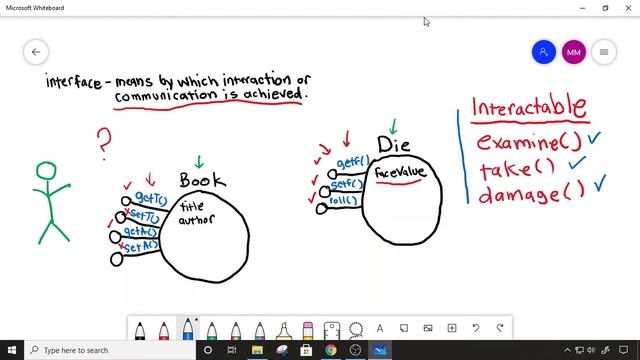 Microsoft Whiteboard
MM
interface - means by which interaction or
communication is achieved.
?
Interactable
examine()
take()
damage()
Book
title
author
getT()
setT()
getA()
setA()
Die
faceValue
getf()
setf()
roll()
Type here to search